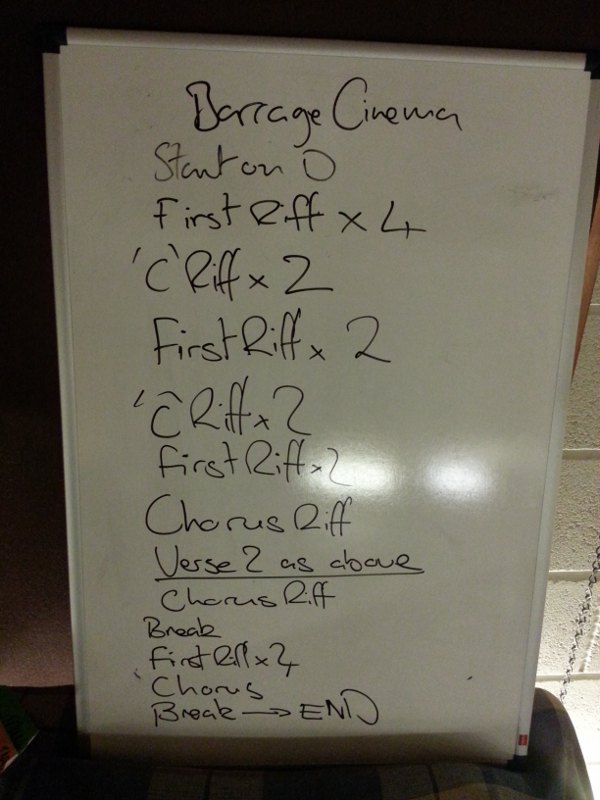 Barrage Cinema
Start on D
First Riff x 4
'C' Riff x 2
First Riff x 2
'C' Riff x 2
First Riff x 2
Chorus Riff
Verse 2 as above
Chorus Riff
Break
First Riff x 4
Chorus
Break → END